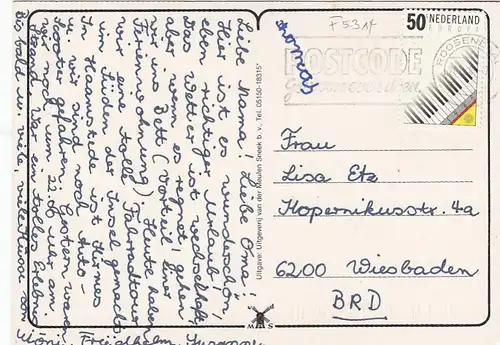 Liebe Mama! Liebe Oma!
Hier ist es wunderschön,
eben richtiger Urlaub!
Das Wetter ist wechselhaft,
aber wenn es regnet, gehen
wir ins Bett (Vorteil einer
Ferienwohnung). Heute haben
wir eine tolle Fahrradtour
im Süden der Insel gemacht
In Haamstede ist Kirmes
u. wir sind noch Auto-
scooter gefahren. Gestern waren
wir noch um 22.06 Uhr am
Strand. War ein tolles Erlebnis
Bis bald u. viele, viele Küsse von
Friedhelm, Susanne
Uitgave: Uitgeverij van der Meulen Sneek b.v., Tel. 05150-18315*
M S
thomas
F 531f
50 NEDERLAND
EUROPA
POSTCODE
ROOSEN
Frau
Lisa Etz
Kopernikusstr. 4a
6200 Wiesbaden
BRD